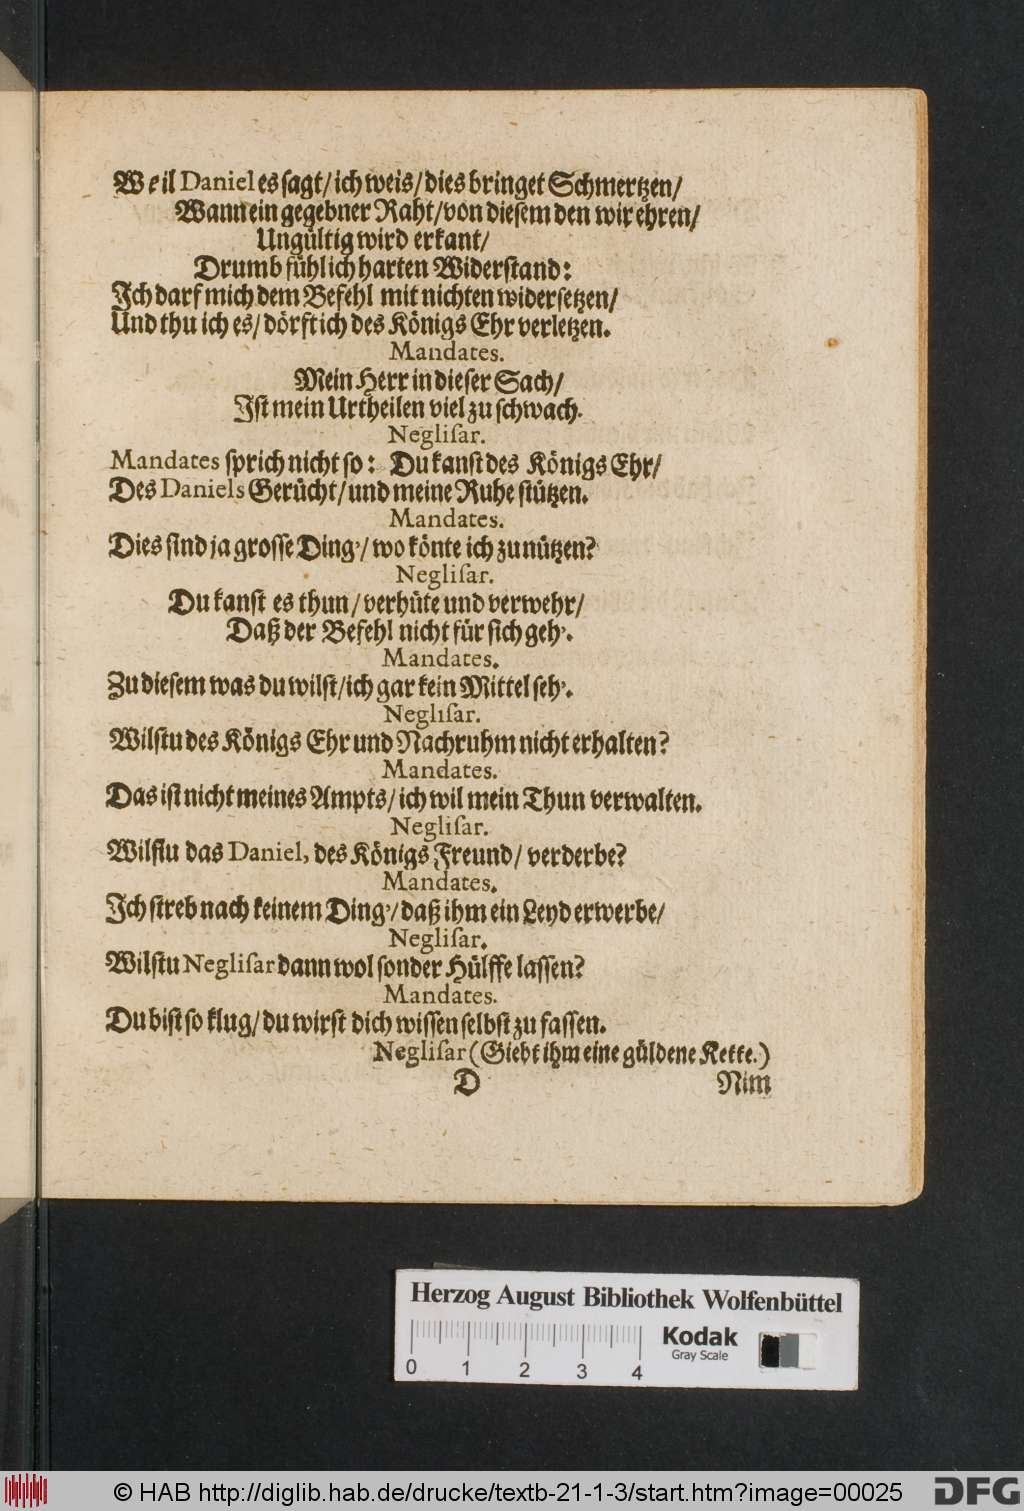 Weil Daniel es sagt/ ich weis/ dies bringet Schmertzen/
Wann ein gegebner Raht/ von diesem den wir ehren/
Ungültig wird erkant/
Drumb fühl ich harten Widerstand:
Ich darf mich dem Befehl mit nichten widersetzen/
Und thu ich es/ dörft ich des Königs Ehr verletzen.
Mandates.
Mein Herr in dieser Sach/
Ist mein Urtheilen viel zu schwach.
Negliſar.
Mandates sprich nicht so: Du kanst des Königs Ehr/
Des Daniels Gerücht/ und meine Ruhe stützen.
Mandates.
Dies sind ja grosse Ding'/ wo könte ich zu nützen?
Negliſar.
Du kanst es thun/ verhüte und verwehr/
Daß der Befehl nicht für sich geh'.
Mandates.
Zu diesem was du wilst/ ich gar kein Mittel seh'.
Negliſar.
Wilstu des Königs Ehr und Nachruhm nicht erhalten?
Mandates.
Das ist nicht meines Ampts/ ich wil mein Thun verwalten.
Negliſar.
Wilstu das Daniel, des Königs Freund/ verderbe?
Mandates.
Ich streb nach keinem Ding'/ daß ihm ein Leyd erwerbe/
Negliſar.
Wilstu Negliſar dann wol sonder Hülffe lassen?
Mandates.
Du bist so klug/ du wirst dich wissen selbst zu fassen.
Negliſar (Giebt ihm eine güldene Kette.)
D Nim
Herzog August Bibliothek Wolfenbüttel
Kodak
Gray Scale
0 1 2 3 4
© HAB http://diglib.hab.de/drucke/textb-21-1-3/start.htm?image=00025
DFG